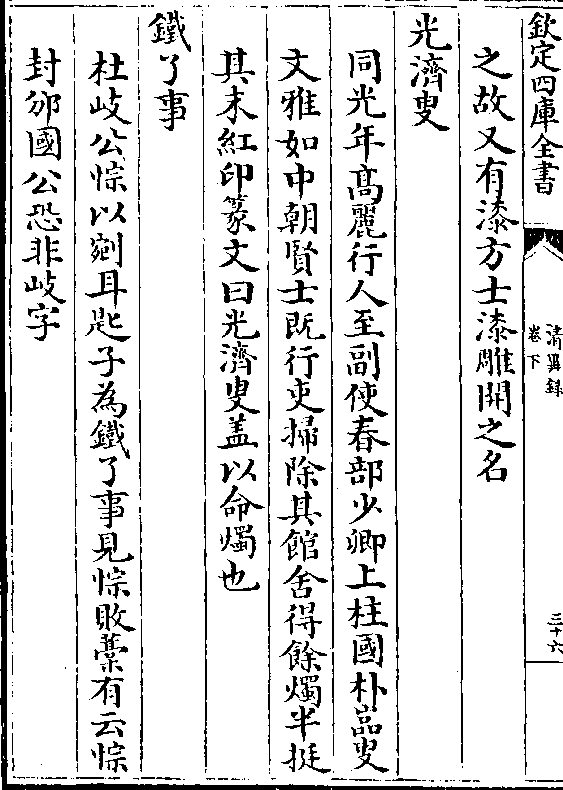 欽定四庫全書
清異録
卷下
三十六
之故又有漆方士漆雕開之名
光濟叟
同光年髙麗行人至副使春部少卿上柱國朴品叟
文雅如中朝賢士既行吏掃除其館舍得餘燭半挺
其末紅印篆文曰光濟叟盖以命燭也
鐵了事
杜岐公悰以剜耳匙子為鐵了事見悰敗藁有云悰
封邠國公恐非岐字